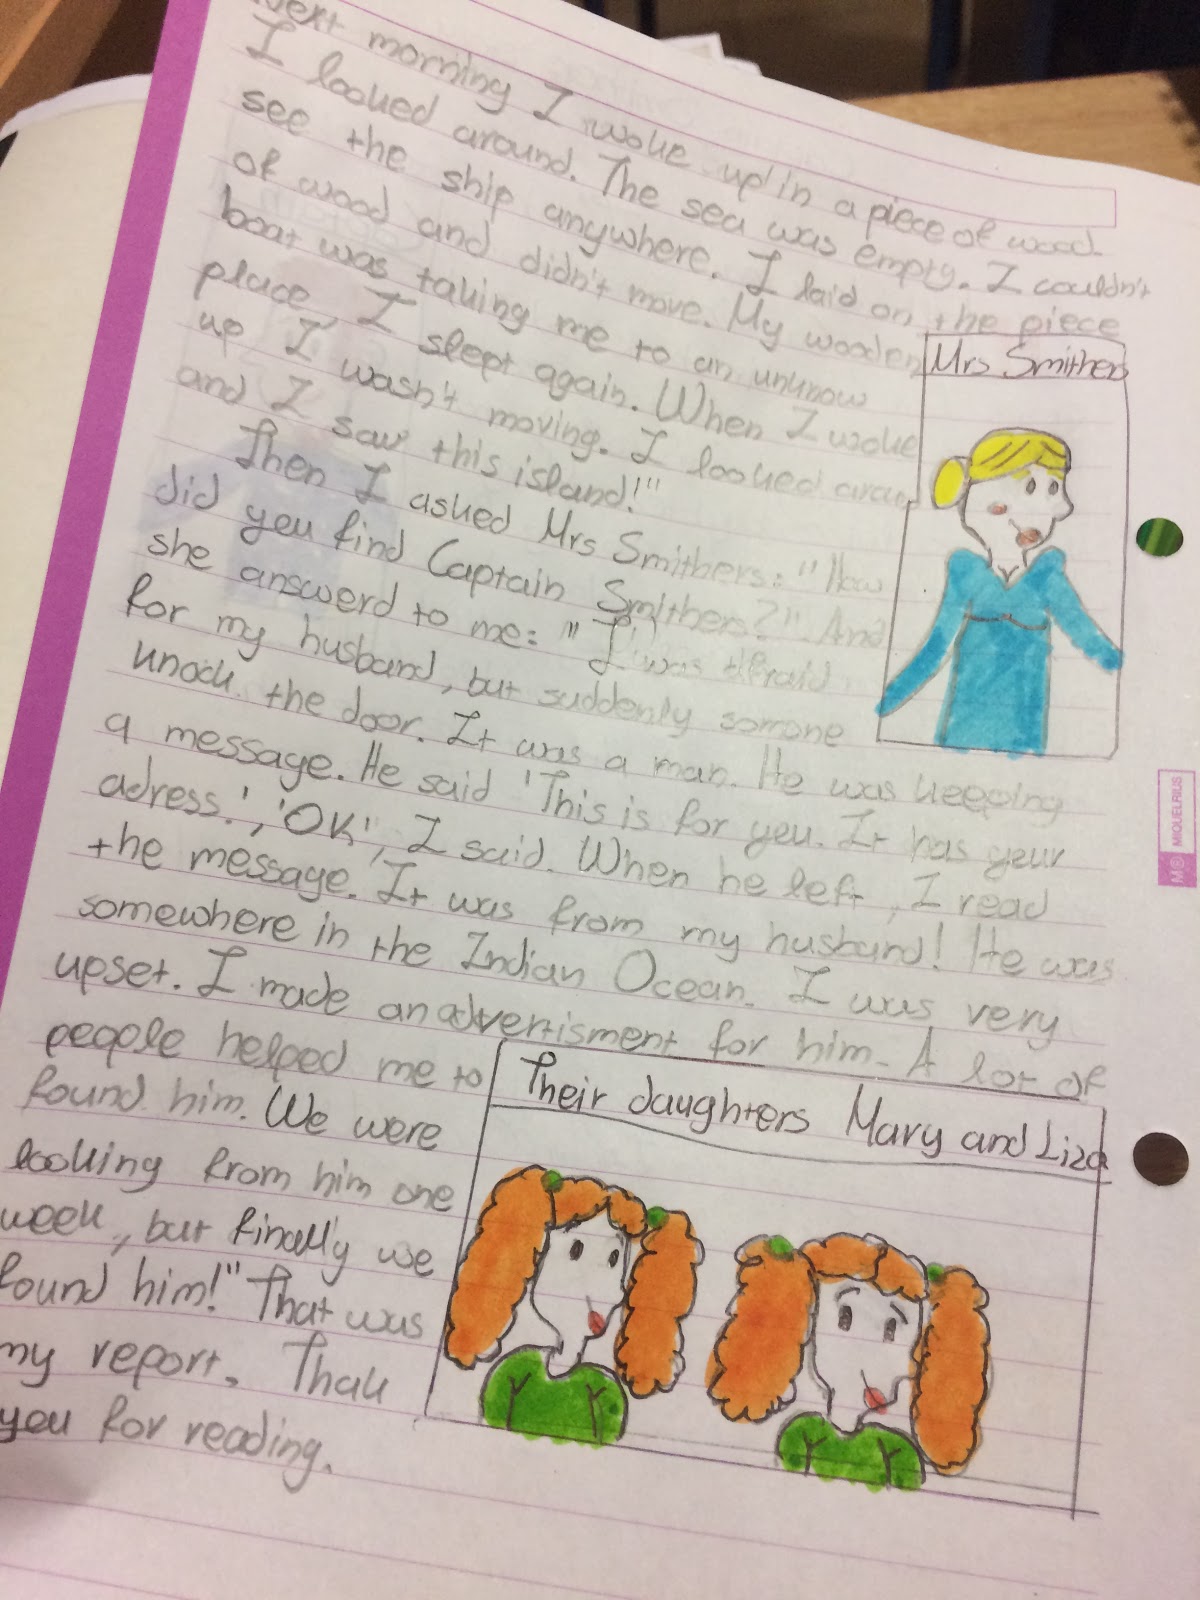 Next morning I woke up in a piece of wood.
I looked around. The sea was empty. I couldn't
see the ship anywhere. I laid on the piece
of wood and didn't move. My wooden
boat was taking me to an unknow
place, I slept again. When I woke
up I wasn't moving. I looked aroun
and I saw this island!"
Then I asked Mrs Smithers: "How
did you find Captain Smithers?" And
she answerd to me: "I was afraid
for my husband, but suddenly somone
knock the door. It was a man. He was keeping
a message. He said 'This is for you. It has your
adress.', 'OK', I said. When he left, I read
the message. It was from my husband! He was
somewhere in the Indian Ocean. I was very
upset. I made an advertisment for him. A lot of
people helped me to
found him. We were
looking from him one
week, but finally we
found him!" That was
my report. Thak
you for reading.
Mrs Smithers
Their daughters Mary and Liza
MIQUELRIUS